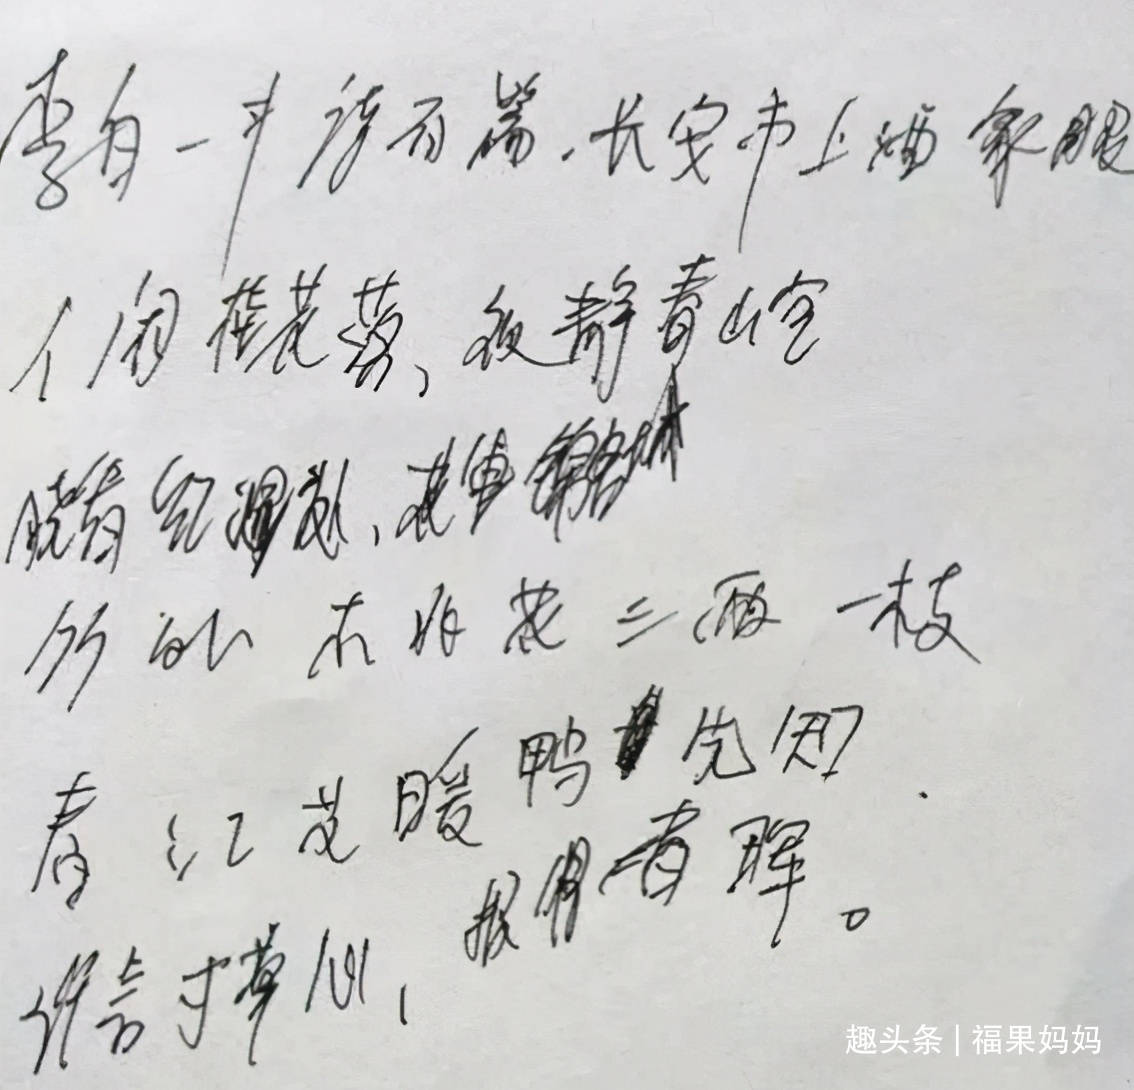 李白一斗诗百篇.长安市上酒家眠
人闲桂花落、夜静春山空
晓看红湿处,花重锦官城
竹 花 两一枝
春江 暖鸭先知.
谁言寸草心,报得春晖。
趣头条 | 福果妈妈